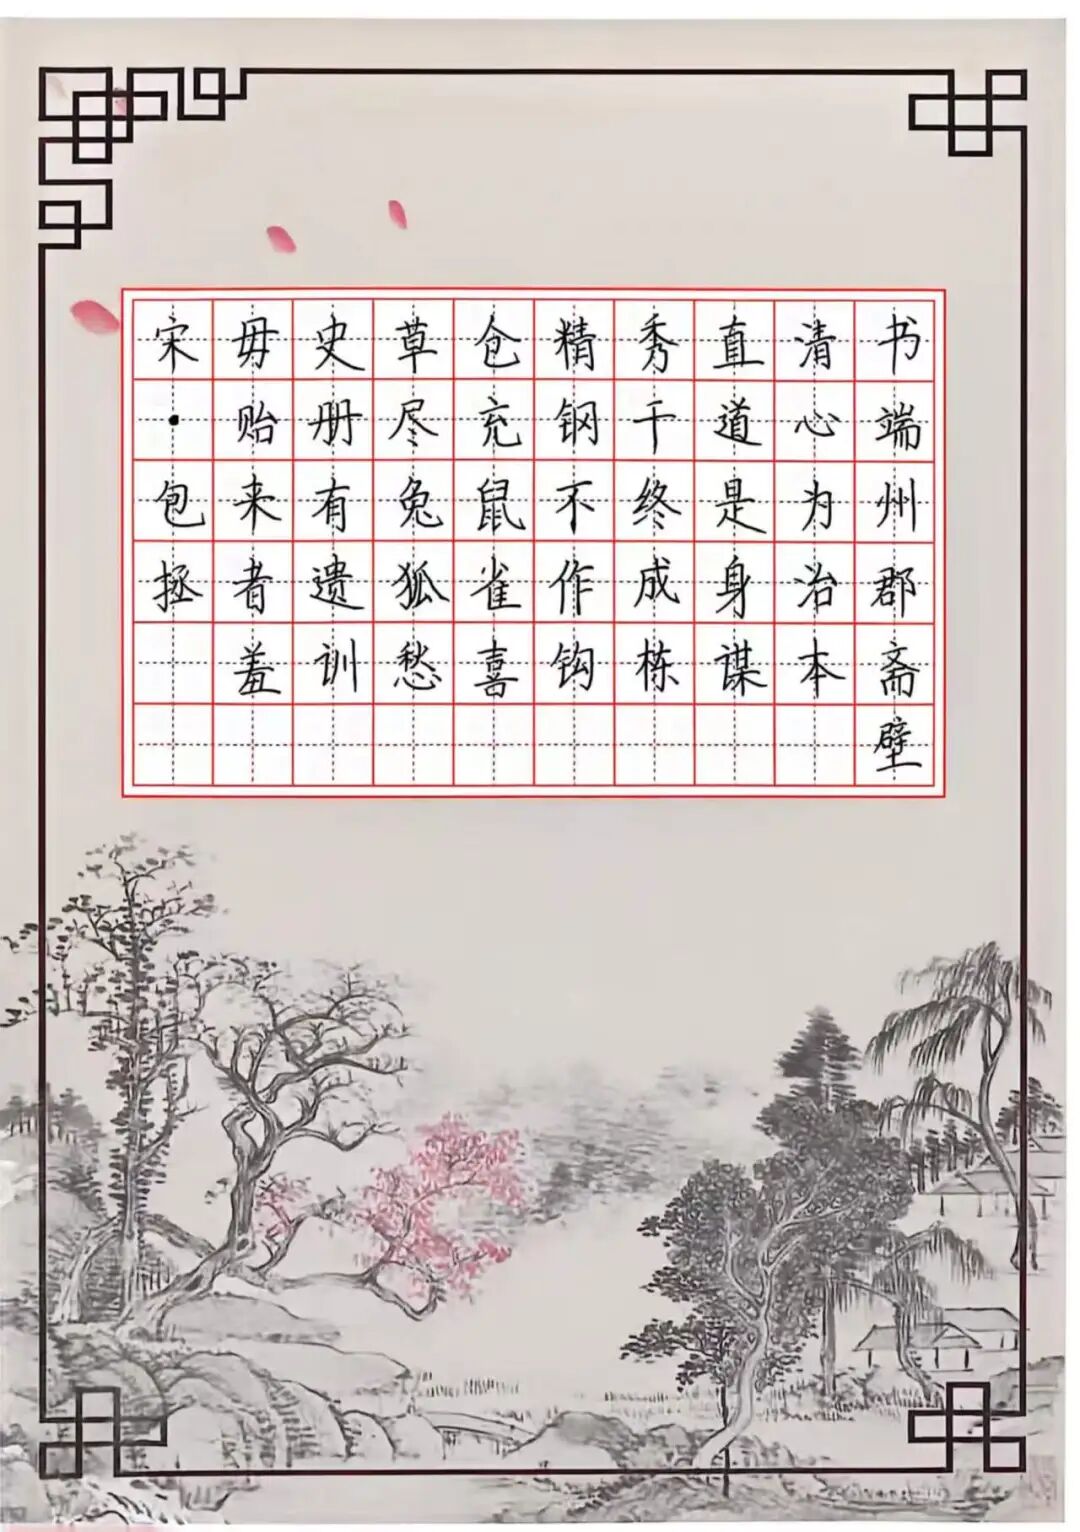 书端州郡斋壁
清心为治本
直道是身谋
秀干终成栋
精钢不作钩
仓充鼠雀喜
草尽兔狐愁
史册有遗训
毋贻来者羞
宋·包拯